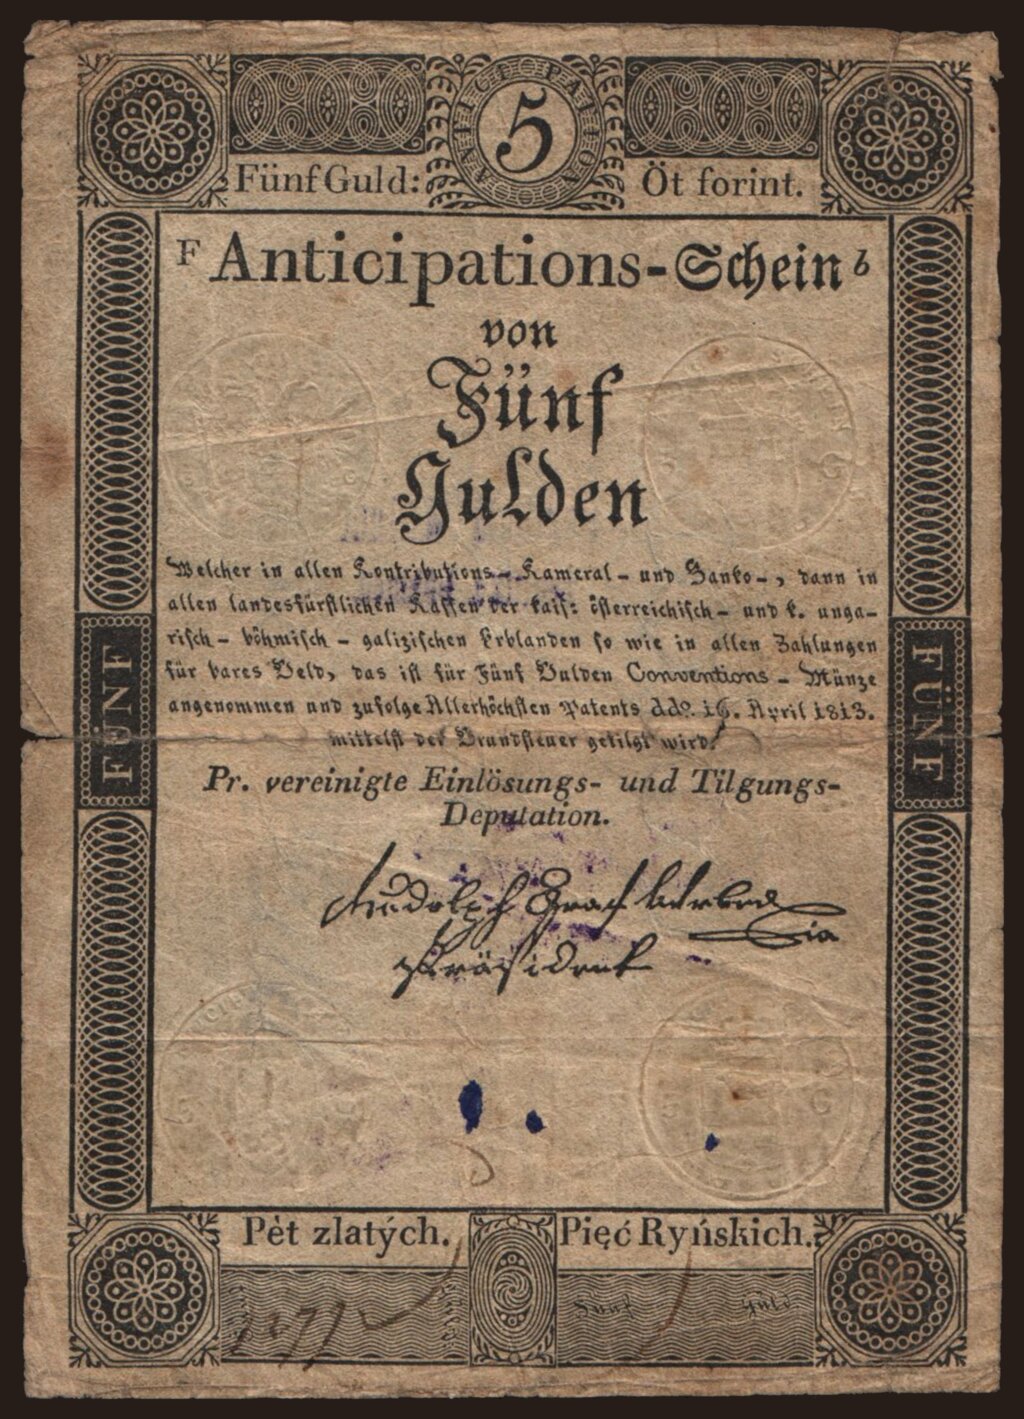 ANTICIPATION
5
Fünf Guld: Öt forint.
F Anticipations-Schein b
von
Fünf
Gulden
Welcher in allen Kontributions- Kameral- und Banko-, dann in
allen landesfürstlichen Kassen der kais: österreichisch- und k. unga-
risch- böhmisch- galizischen Erblanden so wie in allen Zahlungen
für bares Geld, das ist für Fünf Gulden Conventions- Münze
angenommen und zufolge Allerhöchsten Patents ddo. 16. April 1813.
mittelst der Grundsteuer getilgt wird.
FÜNF
FÜNF
Pr. vereinigte Einlösungs- und Tilgungs-
Deputation.
Rudolph Graf
Präsident
Pèt zlatých. Pięć Ryńskich.
Fünf Guld